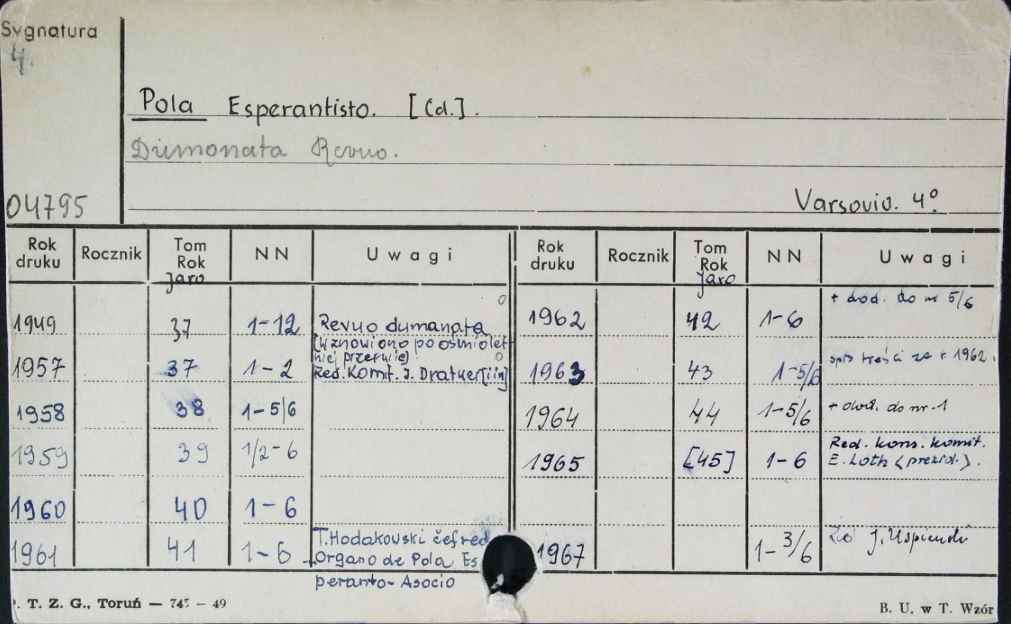 Sygnatura
4.
Pola Esperantisto. [Cd.].
Dumonata Revuo.
04795
Varsovio. 4º.
Rok druku Rocznik Tom Rok Jaro NN Uwagi Rok druku Rocznik Tom Rok Jaro NN Uwagi
1949 37 1-12 Revuo dumanata
[Wznowiono po ośmiolet-
niej przerwie]
1957 37 1-2 Red. Komit. J. Dratwer [i in]
1958 38 1-5/6
1959 39 1/2-6
1960 40 1-6
1961 41 1-6 T. Hodakowski ĉefred.
Organo de Pola Es
peranto-Asocio
1962 42 1-6 + dod. do nr 5/6
1963 43 1-5/6 spis treści za r. 1962.
1964 44 1-5/6 + dod. do nr. 1
1965 [45] 1-6 Red. kons. komit.
E. Loth (prezid.).
1967 1-3/6 J.
T. Z. G., Toruń — 745 — 49
B. U. w T. Wzór